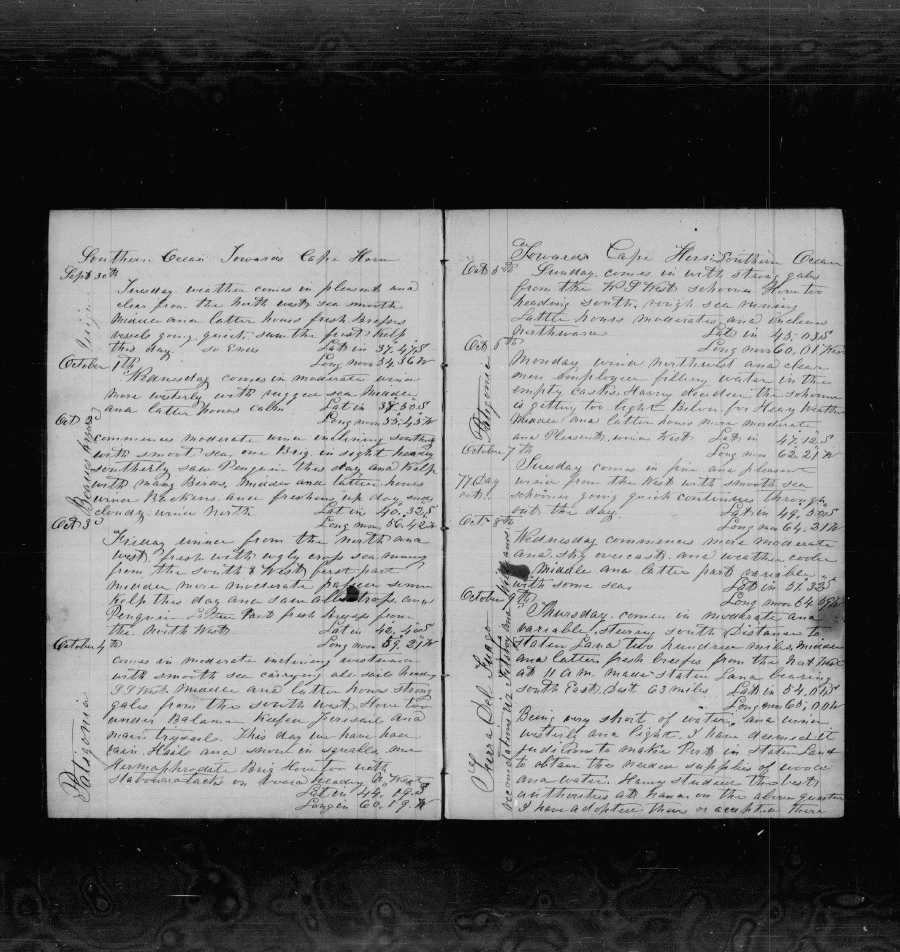 Southern Ocean Towards Cape Horn
Sept 30th
Tuesday weather comes in pleasent and
clear from the North west sea smooth
Middle and latter hours fresh Breezes
vessels going quick, saw the first kelp
this day. so Ends Lat in 37.47.S
Long 54.36 W
October 1th
Wednesday comes in moderate wind
more westerly with rugged sea Middle
and latter hours calm Lat in 38.50S
Long 55.45 W
Oct 2
commences moderate wind inclining southerly
with smoot sea, one Brig in sight heading
southerly saw Penguin this day and kelp
with many Birds. Middle and latter hours
wind Backens and freshens up day ends
cloudy wind North Lat in 40.32S
Long 56.42 W
Oct 3d
Friday wind from the north and
west fresh with ugly cross sea running
from the south & West first part
middle more moderate
kelp this day and saw and
Penguin Latter Part fresh breeze from
the North West Lat in 42.40S
Long 59.21 W
October 4th
comes in moderate inclining westward
with smooth sea carrying all sail heading
S S West Middle and latter hours strong
gales from the south west. Hove too
under Balance Reefed Foresail and
main trysail. This day we have had
rain Hail and snow in squalls one
Hermaphrodate Brig Hove too with
Starboard tacks on board heading N West
Lat in 44.19.S
Long in 60.19. W
Patigonia
Towards Cape Horn Southern Ocean
Oct 5th
Sunday comes in with strong gales
from the W S West schooner Hove too
heading south. rough sea running
Lattle hours moderates and inclines
northward Lat in 45.03S
Long 60.01 West
Oct 6th
Monday wind northwest and clear
men employed filling water in the
empty casks. Having decided the schooner
is getting too light Below for Heavy Weather
Middle and latter hours more moderate
and Pleasent, wind West Lat in 47.12S
Long 62.21 W
Patigonia
October 7th
Tuesday comes in fine and pleasent
wind from the West with smooth sea
77 Day
out!
schooner going quick continues through
out the day. Lat in 49.50S
Long 64.21 W
Oct 8th
Wednesday commences more moderate
and sky overcast. and weather cooler
Middle and latter part variable
with some sea, Lat in 51.33S
Long 64
October
Thursday. comes in moderate and
variable, stering south Distance to
Staten Land two hundred miles, middle
and latter fresh breezes from the
at 11 a m. made staten Land bearing
south East. Dist 63 miles. Lat in 54.01S
Long 65.00 W
Being very short of water, and wind
westerly and light. I have deemed it
judicious to make Port in Staten Land
to obtain the needed supplies of wood
and water. Having studied the best
authorities at hand on the above quarter
I have adopted them or accepted there
Tierra Del Fuago